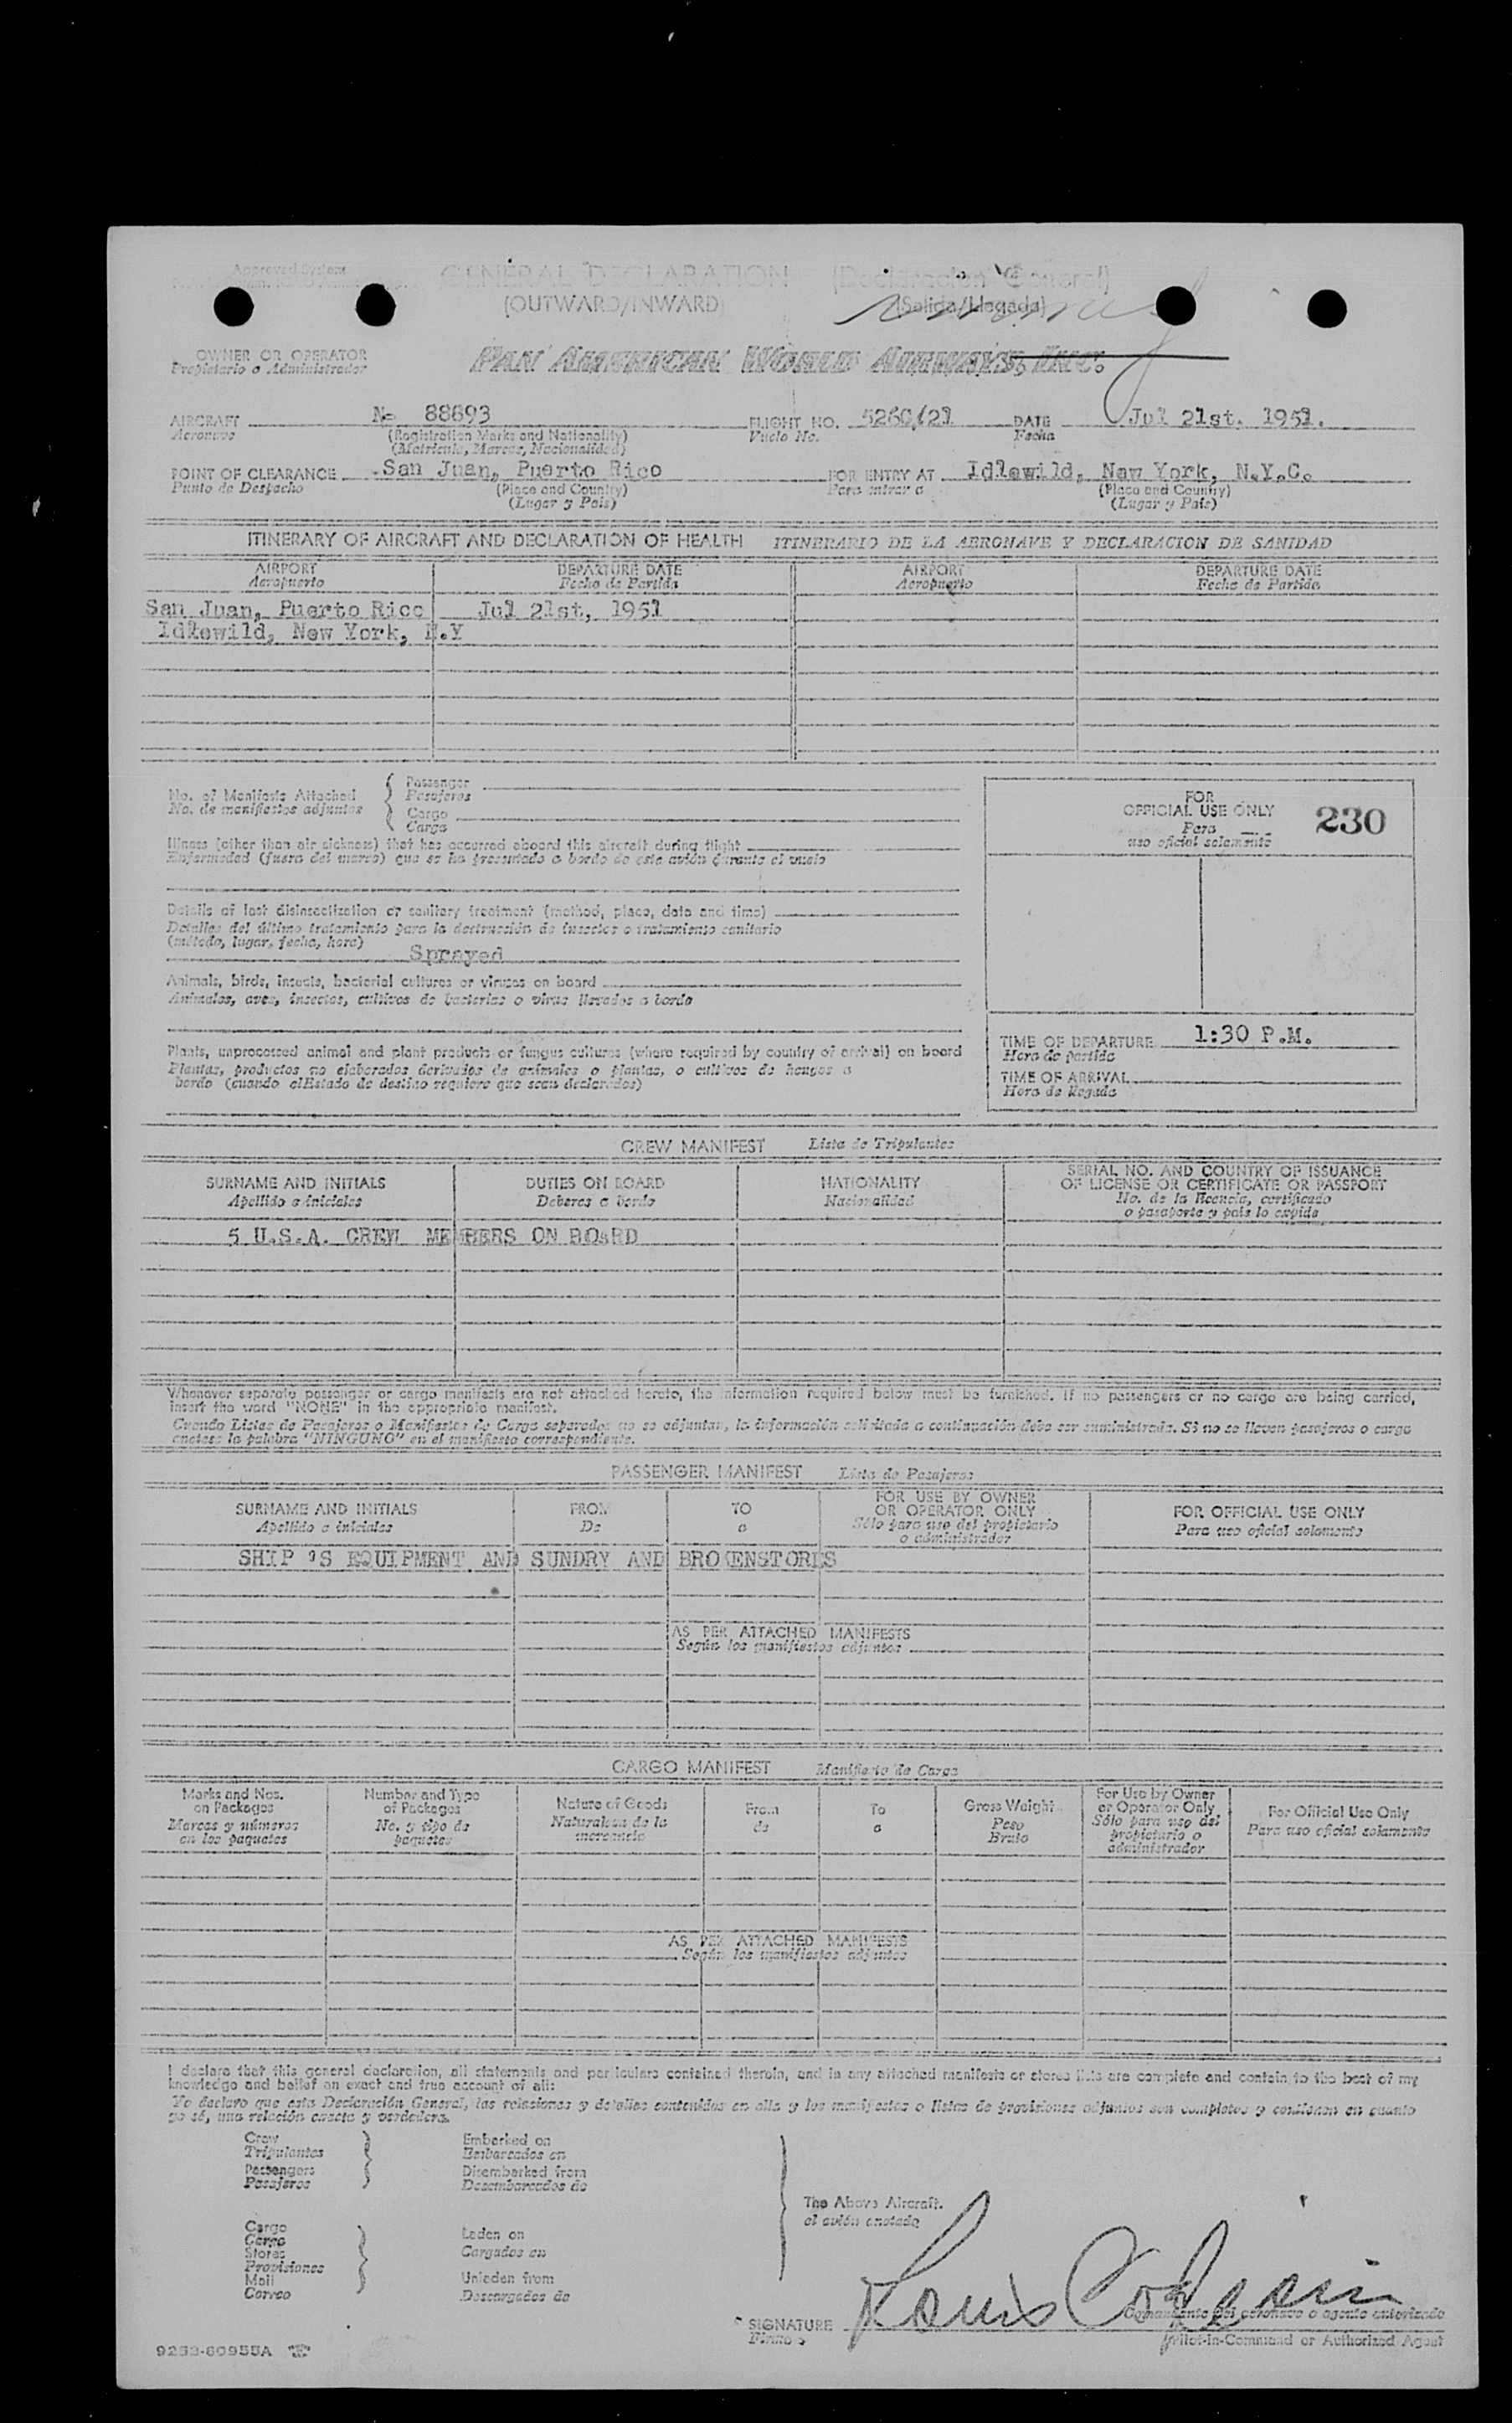 Approved System
GENERAL DECLARATION (Declaracion General)
(OUTWARD/INWARD) (Salida/Llegada)
OWNER OR OPERATOR PAN AMERICAN WORLD AIRWAYS, INC.
Propietario o Administrador
AIRCRAFT N- 88893 FLIGHT NO. 5260/21 DATE Jul 21st. 1951.
Aeronave (Registration Marks and Nationality) Vuelo No. Fecha
(Matricula, Marcas, Nacionalidad)
POINT OF CLEARANCE San Juan, Puerto Rico FOR ENTRY AT Idlewild, New York, N.Y.C.
Punto de Despacho (Place and Country) Para entrar a (Place and Country)
(Lugar y Pais) (Lugar y Pais)
ITINERARY OF AIRCRAFT AND DECLARATION OF HEALTH ITINERARIO DE LA AERONAVE Y DECLARACION DE SANIDAD
AIRPORT DEPARTURE DATE AIRPORT DEPARTURE DATE
Aeropuerto Fecha de Partida Aeropuerto Fecha de Partida
San Juan, Puerto Rico Jul 21st, 1951
Idlewild, New York, N.Y
No. of Manifests Attached Passenger
No. de manifiestos adjuntos Pasajeros
Cargo
Carga
FOR
OFFICIAL USE ONLY 230
Para
uso oficial solamente
Illness (other than air sickness) that has occurred aboard this aircraft during flight
Enfermedad (fuera del mareo) que se ha presentado a bordo de este avión durante el vuelo
Details of last disinsectization or sanitary treatment (method, place, date and time)
Detalles del último tratamiento para la destrucción de insectos o tratamiento sanitario
(método, lugar, fecha, hora)
Sprayed
Animals, birds, insects, bacterial cultures or viruses on board
Animales, aves, insectos, cultivos de bacterias o virus llevados a bordo
Plants, unprocessed animal and plant products or fungus cultures (where required by country of arrival) on board
Plantas, productos no elaborados derivados de animales o plantas, o cultivos de hongos a
bordo (cuando el Estado de destino requiere que sean declarados)
TIME OF DEPARTURE 1:30 P.M.
Hora de partida
TIME OF ARRIVAL
Hora de llegada
CREW MANIFEST Lista de Tripulantes
SURNAME AND INITIALS DUTIES ON BOARD NATIONALITY SERIAL NO. AND COUNTRY OF ISSUANCE
OF LICENSE OR CERTIFICATE OR PASSPORT
Apellido e iniciales Deberes a bordo Nacionalidad No. de la licencia, certificado
o pasaporte y país lo expide
5 U.S.A. CREW MEMBERS ON BOARD
Whenever separate passenger or cargo manifests are not attached hereto, the information required below must be furnished. If no passengers or no cargo are being carried,
insert the word "NONE" in the appropriate manifest.
Cuando Listas de Pasajeros o Manifiestos de Carga separados no se adjuntan, la información solicitada a continuación debe ser suministrada. Si no se llevan pasajeros o carga
anotese la palabra "NINGUNO" en el manifiesto correspondiente.
PASSENGER MANIFEST Lista de Pasajeros
SURNAME AND INITIALS FROM TO FOR USE BY OWNER
OR OPERATOR ONLY FOR OFFICIAL USE ONLY
Apellido e iniciales De a Sólo para uso del propietario
o administrador Para uso oficial solamente
SHIP 'S EQUIPMENT AND SUNDRY AND BROKENSTORES
AS PER ATTACHED MANIFESTS
Según los manifiestos adjuntos
CARGO MANIFEST Manifiesto de Carga
Marks and Nos.
on Packages
Marcas y números
en los paquetes
Number and Type
of Packages
No. y tipo de
paquetes
Nature of Goods
Naturaleza de la
mercancía
From
de
To
a
Gross Weight
Peso
Bruto
For Use by Owner
or Operator Only
Sólo para uso del
propietario o
administrador
For Official Use Only
Para uso oficial solamente
AS PER ATTACHED MANIFESTS
Según los manifiestos adjuntos
I declare that this general declaration, all statements and particulars contained therein, and in any attached manifests or stores lists are complete and contain to the best of my
knowledge and belief an exact and true account of all:
Yo declaro que esta Declaración General, las relaciones y detalles contenidos en ella y los manifiestos o listas de provisiones adjuntos son completos y contienen en cuanto
yo sé, una relación exacta y verdadera.
Crew
Tripulantes
Passengers
Pasajeros
Embarked on
Embarcados en
Disembarked from
Desembarcados de
The Above Aircraft.
el avión anotado
Cargo
Carga
Stores
Provisiones
Mail
Correo
Laden on
Cargados en
Unladen from
Descargados de
SIGNATURE Louis
Firma
Comandante del aeronave o agente autorizado
Pilot-in-Command or Authorized Agent
9233-60955A